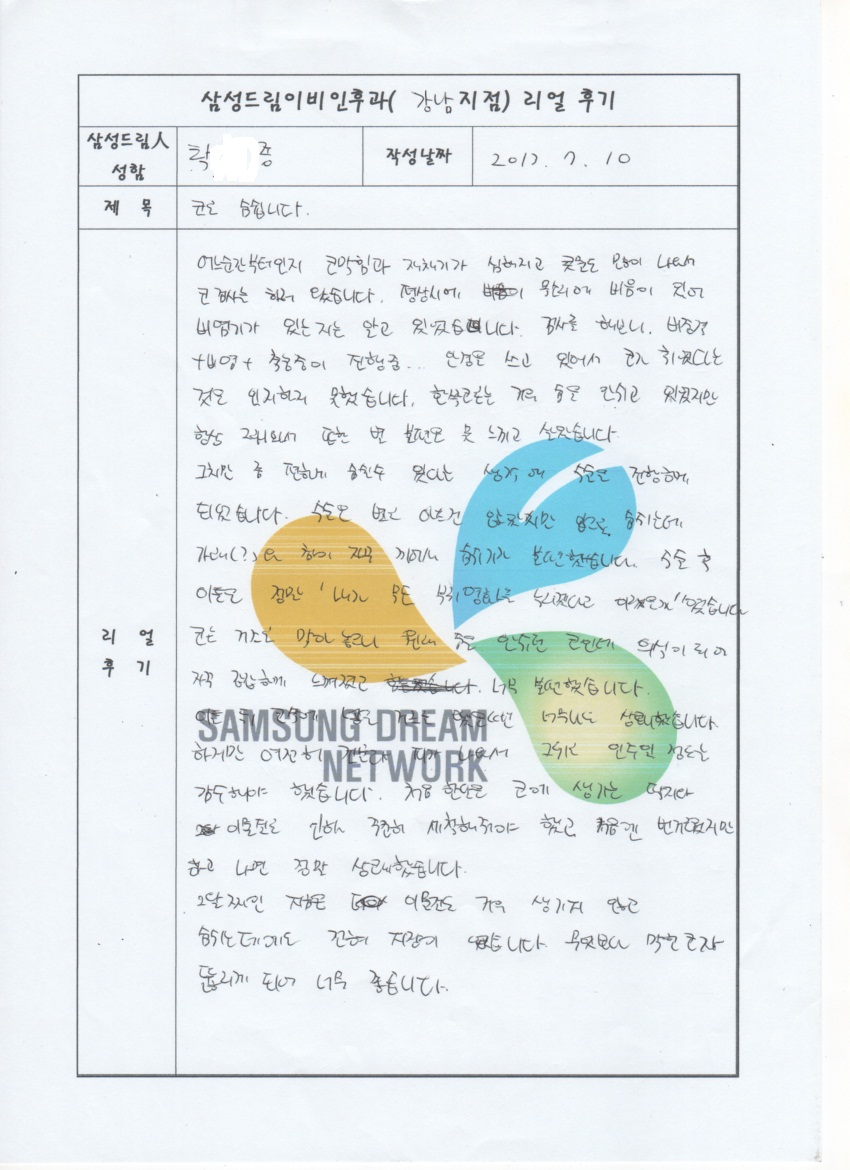 삼성드림이비인후과( 강남 지점) 리얼 후기
삼성드림人
성함
탁 중
작성날짜
2017. 7. 10
제 목
코로 숨쉽니다.
리 얼
후 기
어느순간부터인지 코막힘과 재채기가 심해지고 콧물도 많이 나와서
코검사는 하러 갔습니다. 평상시에 환절기에 비염이 있어
비염기가 있는지는 알고 있었습니다. 검사를 해보니, 비중격
+비염+ 축농증이 진행중... 안경은 쓰고 있어서 코가 휘었다는
것은 인지하지 못했습니다. 한쪽코로는 거의 숨을 안쉬고 있었지만
항상 그래와서 또한 별 불편은 못 느끼고 살았습니다.
그치만 좀 편하게 숨쉴수 있다는 생각에 수술을 진행하게
되었습니다. 수술은 별로 아프진 않았지만 입으로 숨쉬는데
가래(?)와 침이 자꾸 끼어서 숨쉬기가 불편했습니다. 수술 후
이틀은 정말 '내가 무슨 부귀영화를 누리겠다고 이랬는가' 싶었습니다
코는 거즈로 막아 놓으니 원래 숨을 안쉬던 코인데 의식이 되어
자꾸 답답하게 느껴졌고 너무 불편했습니다.
SAMSUNG DREAM
NETWORK
이틀 뒤 코속에 넣은 거즈를 뺐을때는 너무나도 상쾌했습니다.
하지만 여전히 건조하 피가 나와서 그위로 일주일 정도는
감수해야 했습니다. 처음 한달은 코에 생기는 딱지와
이물질로 인해 꾸준히 세척해줘야 했고 처음엔 번거로웠지만
하고 나면 정말 상쾌했습니다.
2달 째인 지금은 이물감도 거의 생기지 않고
숨쉬는데에도 전혀 지장이 없습니다. 무엇보다 막힌 코가
뚫리게 되어 너무 좋습니다.